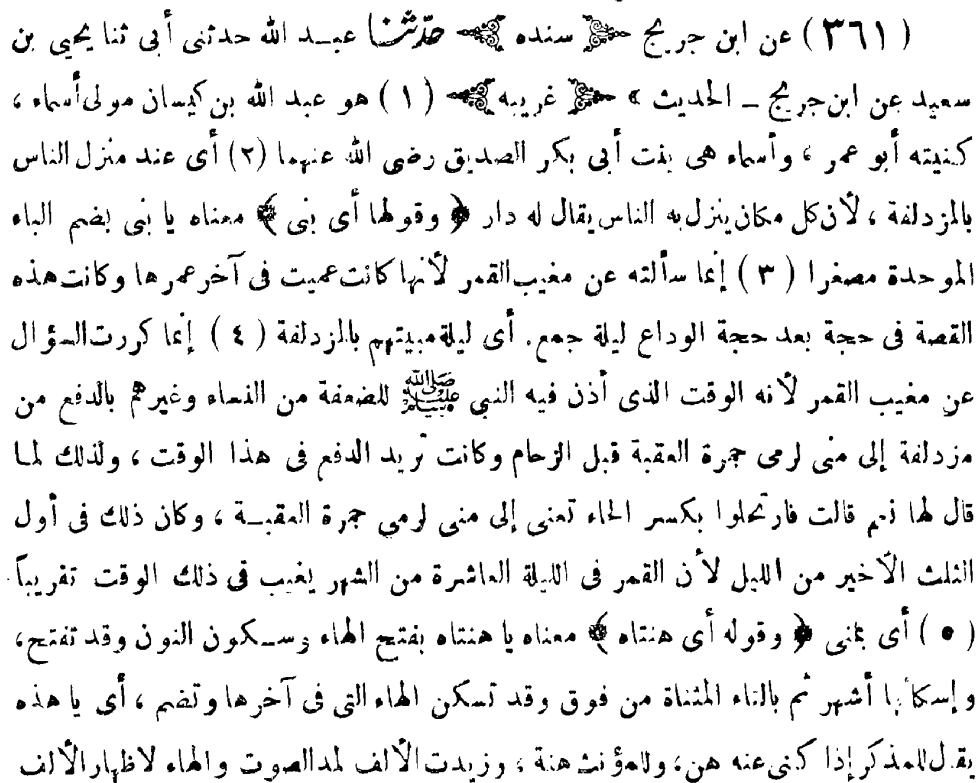 ( ٣٦١ ) عن ابن جريج ﴿ سنده ﴾ حدّثنا عبد الله حدثنى أبى ثنا يحيى بن
سعيد عن ابن جريج ــ الحديث » ﴿ غريبه ﴾ ( ١ ) هو عبد الله بن كيسان مولى أسماء ،
كنيته أبو عمر ، وأسماء هى بنت أبى بكر الصديق رضى الله عنهما (٢) أى عند منزل الناس
بالمزدلفة ، لأن كل مكان ينزل به الناس يقال له دار ﴿ وقولها أى بنى ﴾ معناه يا بنى بضم الباء
الموحدة مصغرا ( ٣ ) إنما سألته عن مغيب القمر لأنها كانت عميت فى آخر عمرها وكانت هذه
القصة فى حجة بعد حجة الوداع ليلة جمع. أى ليلة مبيتهم بالمزدلفة ( ٤ ) إنما كررت السؤال
عن مغيب القمر لأنه الوقت الذى أذن فيه النبى ﷺ للضعفة من النساء وغيرهم بالدفع من
مزدلفة إلى منى لرمى جمرة العقبة قبل الزحام وكانت تريد الدفع فى هذا الوقت ، ولذلك لما
قال لها نعم قالت فارتحلوا بكسر الحاء تعنى إلى منى لرمى جمرة العقبــة ، وكان ذلك فى أول
الثلث الأخير من الليل لأن القمر فى الليلة العاشرة من الشهر يغيب فى ذلك الوقت تقريباً.
( ٥ ) أى بمنى ﴿ وقوله أى هنتاه ﴾ معناه يا هنتاه بفتح الهاء وسـكون النون وقد تفتح،
وإسكانها أشهر ثم بالتاء المثناة من فوق وقد تسكن الهاء التى فى آخرها وتضم ، أى يا هذه
يقال للمذكر إذا كنى عنه هن، وللمؤنث هنة ، وزيدت الألف لمد الصوت والهاء لاظهار الألف